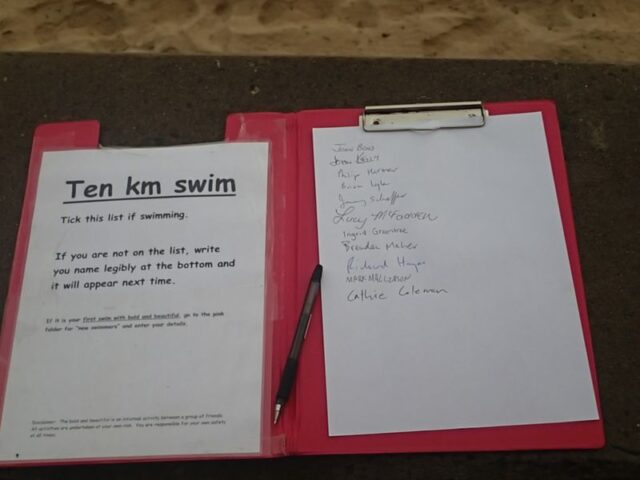 Ten km swim
Tick this list if swimming.
If you are not on the list, write
you name legibly at the bottom and
it will appear next time.
If it is your first swim with bold and beautiful, go to the pink
folder for "new swimmers" and enter your details.
Disclaimer: The bold and beautiful is an informal activity between a group of friends.
All activities are undertaken at your own risk. You are responsible for your own safety
at all times.
John
John Kelly
Philip
Brian Lyle
Jimmy Schaffer
Lucy
Ingrid
Brendan Maher
Richard
MARK
Cathie Coleman